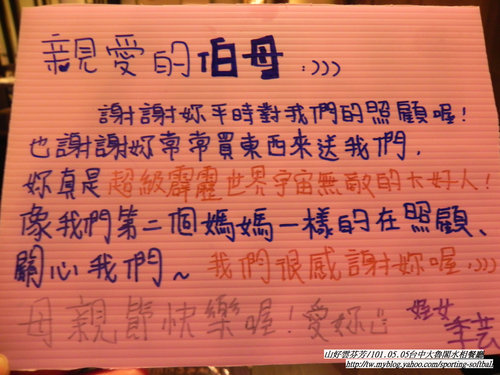 親愛的伯母:)))
謝謝妳平時對我們的照顧喔!
也謝謝妳常常買東西來送我們,
妳真是超級霹靂世界宇宙無敵的大好人!
像我們第二個媽媽一樣的在照顧、
關心我們~ 我們很感謝妳喔:)))
母親節快樂喔!愛妳
姪女
李芸
山好雲芬芳/101.05.05台中大魯閣水相餐廳
http://tw.myblog.yahoo.com/sporting-softbal